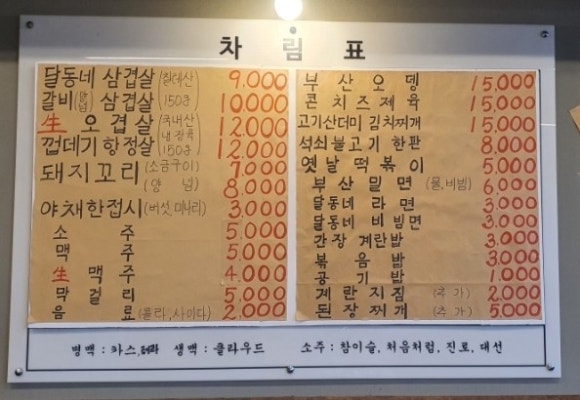 차림표
달동네 삼겹살 (칠레산) 9,000
갈비 삼겹살 150g 10,000
生 오겹살 (국내산 냉장육 12,000
껍데기항정살 150g) 12,000
돼지꼬리 (소금구이) 7,000
(양념) 8,000
야채한접시 (버섯,미나리) 3,000
소주 5,000
맥주 5,000
生맥주 4,000
막걸리 5,000
음료 (콜라,사이다) 2,000
부산오뎅 15,000
콘치즈제육 15,000
고기산더미 김치찌개 15,000
석쇠불고기 한판 8,000
옛날 떡볶이 5,000
부산밀면 (물,비빔) 6,000
달동네 라면 3,000
달동네 비빔면 3,000
간장 계란밥 3,000
볶음밥 3,000
공기밥 1,000
계란지짐 (추가) 2,000
된장찌개 (추가) 5,000
병맥 : 카스, 테라 생맥 : 클라우드 소주 : 참이슬, 처음처럼, 진로, 대선